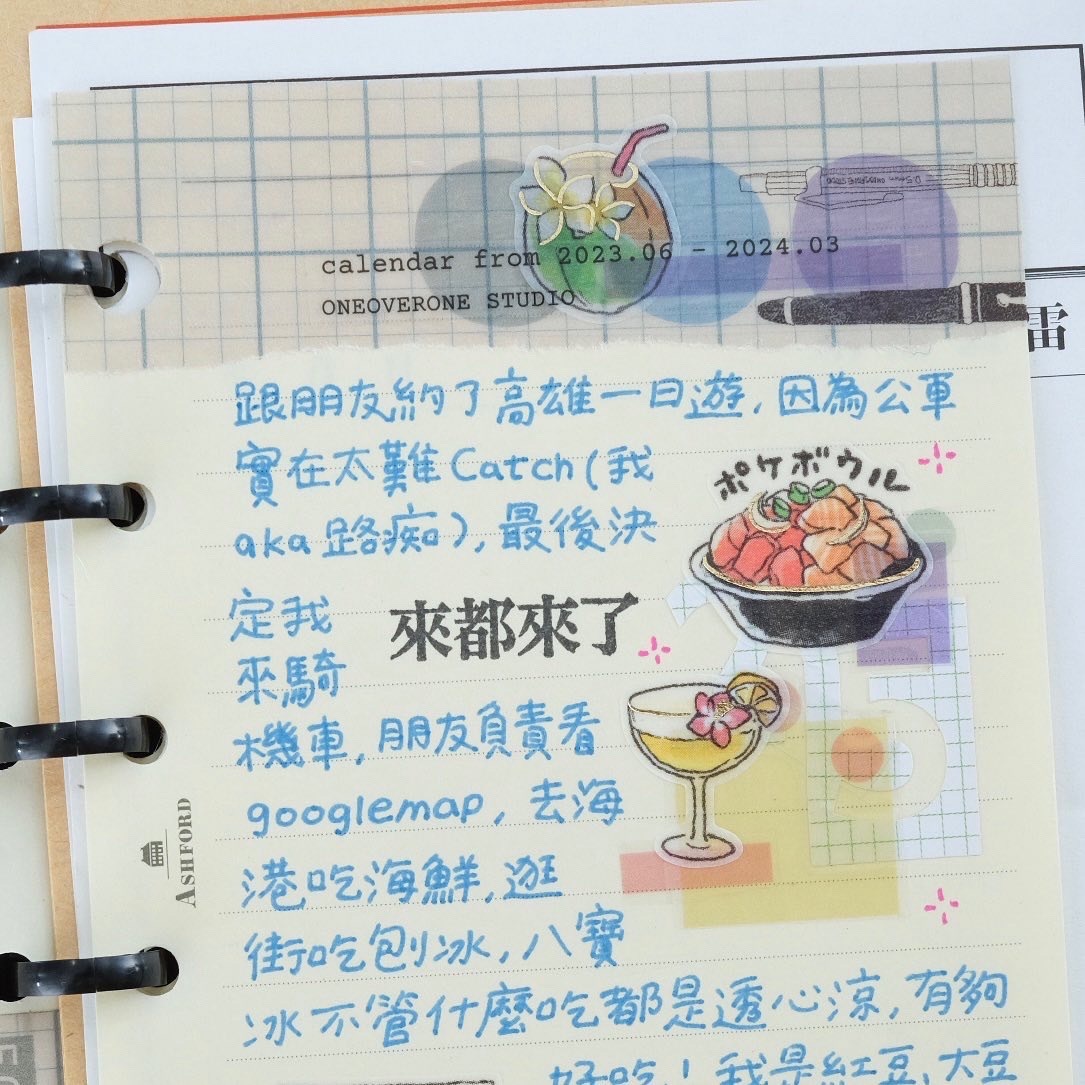 calendar from 2023.06 - 2024.03
ONEOVERONE STUDIO
雷
跟朋友約了高雄一日遊，因為公車
實在太難Catch(我
aka路痴)，最後決
ポケボウル
定我
來都來了
來騎
機車，朋友負責看
googlemap，去海
港吃海鮮，逛
街吃刨冰，八寶
冰不管什麼吃都是透心涼，有夠
好吃！我是紅豆、大豆
ASHFORD